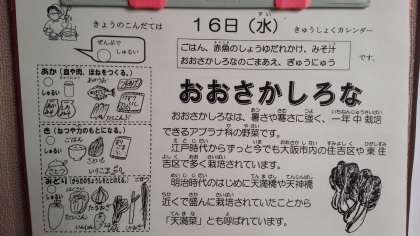 きょうのこんだては
16日(水)
きゅうしょくカレンダー
ぜんぶで
しゅるい
ごはん、赤魚のしょうゆだれかけ、みそ汁
おおさかしろなのごまあえ、ぎゅうにゅう
です。
あか(血や肉、ほねをつくる。)
しゅるい
き(ねつや力のもとになる。)
しゅるい
みどり(からだのちょうしをととのえる。)
しゅるい
おおさかしろな
おおさかしろなは、暑さや寒さに強く、一年中栽培
できるアブラナ科の野菜です。
江戸時代からずっと今でも大阪市内の住吉区や東住
吉区で多く栽培されています。
明治時代のはじめに天満橋や天神橋
近くで盛んに栽培されていたことから
「天満菜」とも呼ばれています。